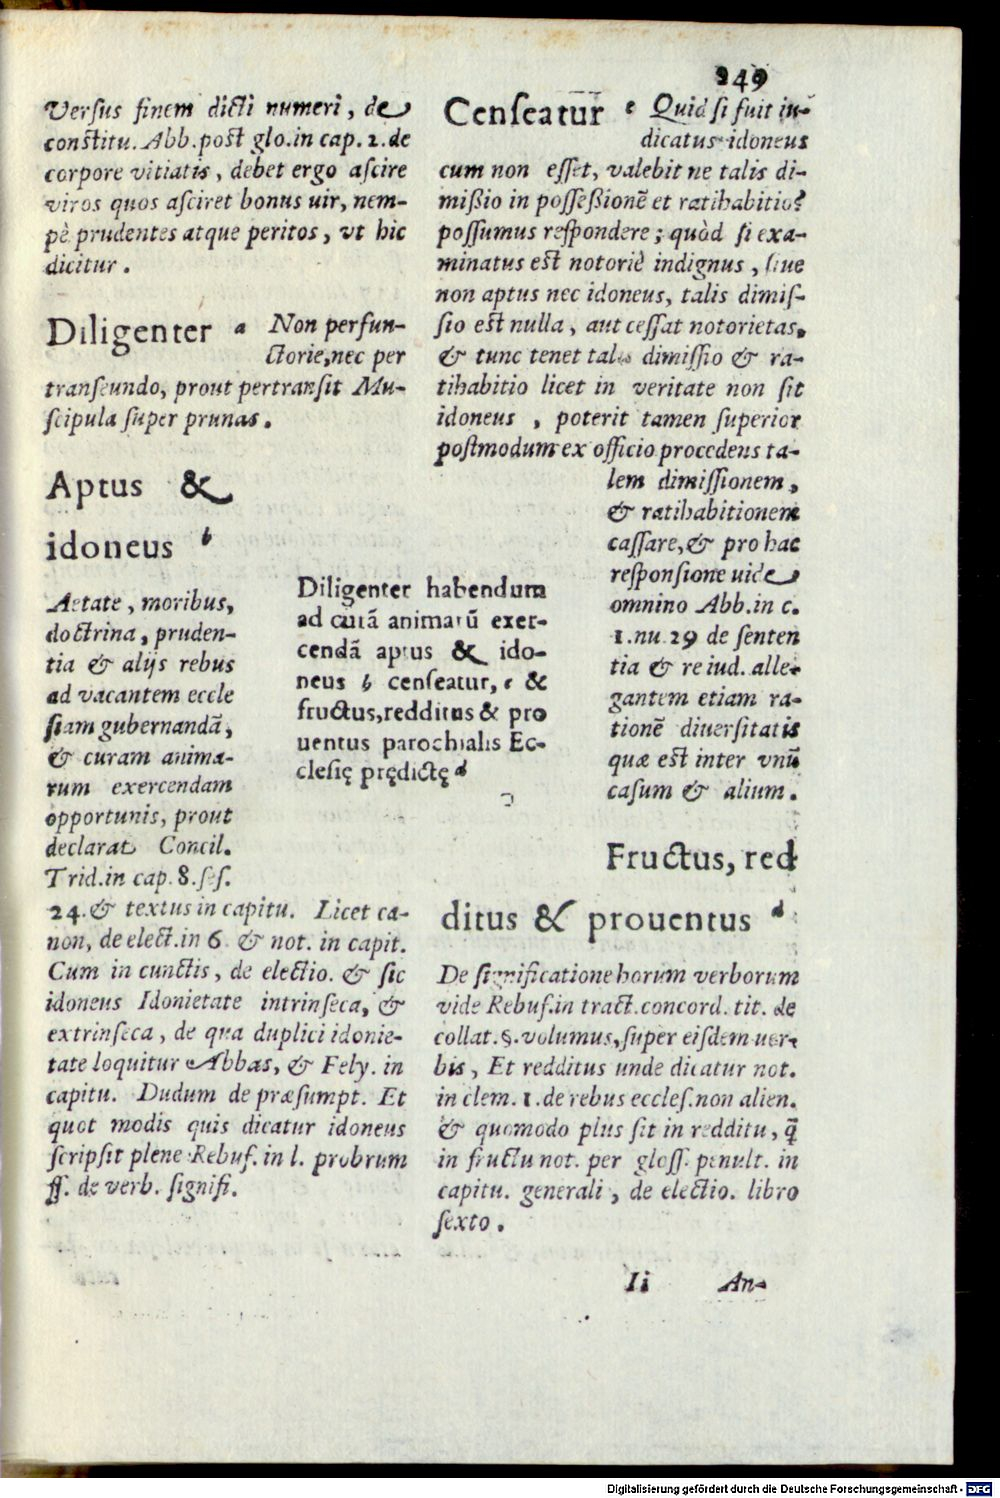 249
Versus finem dicti numeri, de
constitu. Abb. post glo. in cap. 2. de
corpore vitiatis, debet ergo ascire
viros quos asciret bonus uir, nem-
pè prudentes atque peritos, vt hic
dicitur.
Diligenter a Non perfun-
ctorie, nec per
transeundo, prout pertransit Mu-
scipula super prunas.
Aptus &
idoneus b
Aetate, moribus,
doctrina, pruden-
tia & alijs rebus
ad vacantem eccle
siam gubernandā,
& curam anima-
rum exercendam
opportunis, prout
declarat Concil.
Trid. in cap. 8. ses.
24. & textus in capitu. Licet ca-
non, de elect. in 6 & not. in capit.
Cum in cunctis, de electio. & sic
idoneus Idonietate intrinseca, &
extrinseca, de qua duplici idonie-
tate loquitur Abbas, & Fely. in
capitu. Dudum de præsumpt. Et
quot modis quis dicatur idoneus
scripsit plene Rebuf. in l. probrum
ff. de verb. signifi.
Diligenter habendum
ad curā animarū exer-
cendā aptus & ido-
neus b censeatur, c &
fructus, redditus & pro
uentus parochialis Ec-
clesię prędictę d
Censeatur c Quid si fuit iu-
dicatus idoneus
cum non esset, valebit ne talis di-
mißio in possessionē et ratihabitio?
possumus respondere; quòd si exa-
minatus est notoriè indignus, siue
non aptus nec idoneus, talis dimis-
sio est nulla, aut cessat notorietas,
& tunc tenet talis dimissio & ra-
tihabitio licet in veritate non sit
idoneus, poterit tamen superior
postmodum ex officio procedens ta-
lem dimissionem,
& ratihabitionem
cassare, & pro hac
responsione uide
omnino Abb. in c.
1. nu. 29 de senten
tia & re iud. alle-
gantem etiam ra-
tionē diuersitatis
quæ est inter vnū
casum & alium.
Fructus, red
ditus & prouentus d
De significatione horum verborum
vide Rebuf. in tract. concord. tit. de
collat. §. volumus, super eisdem uer-
bis, Et redditus unde dicatur not.
in clem. 1. de rebus eccles. non alien.
& quomodo plus sit in redditu, q̄
in fructu not. per gloss. penult. in
capitu. generali, de electio. libro
sexto.
Ii An-
Digitalisierung gefördert durch die Deutsche Forschungsgemeinschaft - DFG